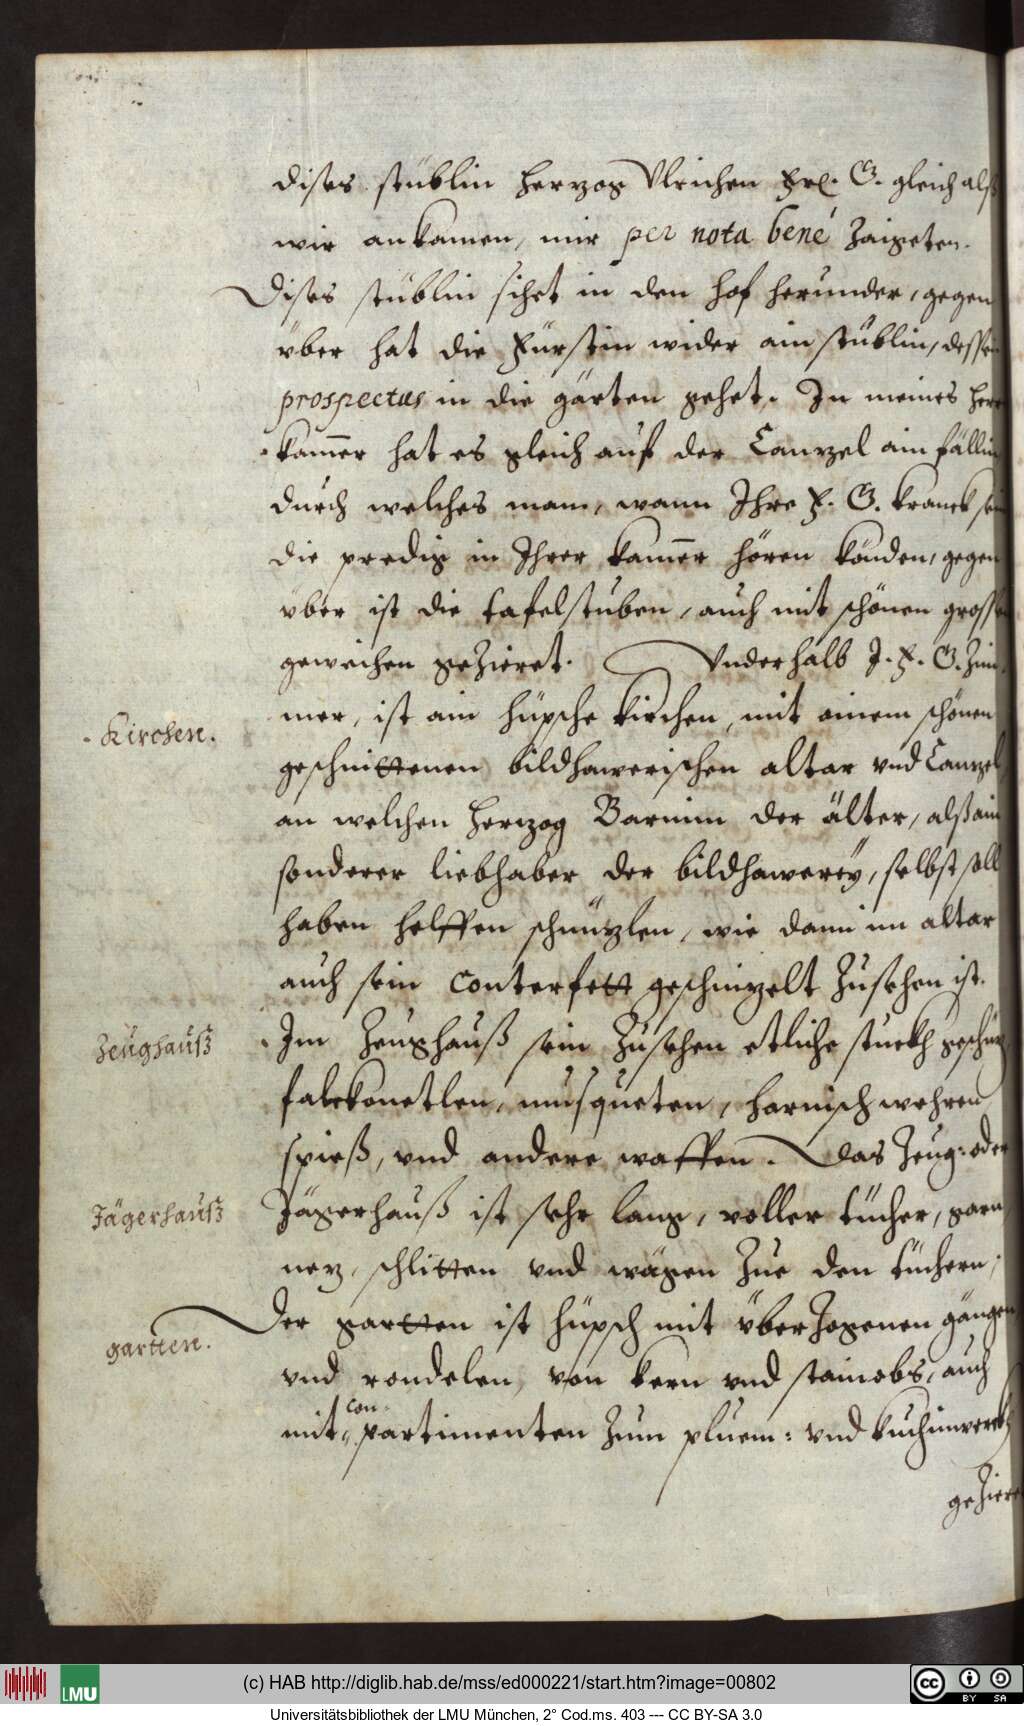 dises stüblin herzog Ulrichen Frl. G. gleich alß
wir ankamen, mir per nota bené zaigeten.
Dises stüblin sihet in den hof herunder, gegen
über hat die Fürstin wider ain stüblin, dessen
prospectus in die gärten gehet. In meines herrn
kam̄er hat es gleich auf der Canzel ain fällin
durch welches man, wann Ihre F. G. kranck sein
die predig in Ihrer kam̄er hören könden, gegen
über ist die tafelstuben, auch mit schönen grossen
geweihen gezieret. Underhalb I. F. G. Zim
Kirchen.
mer, ist ain hüpsche kirchen, mit einem schönen
geschnittenen bildhawerischen altar und Canzel
an welchen herzog Barnim der älter, alß ain
sonderer liebhaber der bildhawerey, selbst soll
haben helffen schnützlen, wie dann im altar
auch sein Conterfett geschnizelt zusehen ist.
Zeüghauß
Im Zeughauß sein zusehen etliche stuckh geschüz
falckonetlen, musqueten, harnisch wehren
spieß, und andere waffen. Das Zeug: oder
Jägerhauß
Jägerhauß ist sehr lang, voller tücher, garn
nez, schlitten und wägen zue den tüchern,
gartten.
Der gartten ist hüpsch mit überzogenen gängen
und rondelen, von kern und stainobs, auch
con
mit partimenten zum pluem: und kuchinwerckh
geziere
(c) HAB http://diglib.hab.de/mss/ed000221/start.htm?image=00802
LMU
BY SA
Universitätsbibliothek der LMU München, 2° Cod.ms. 403 --- CC BY-SA 3.0